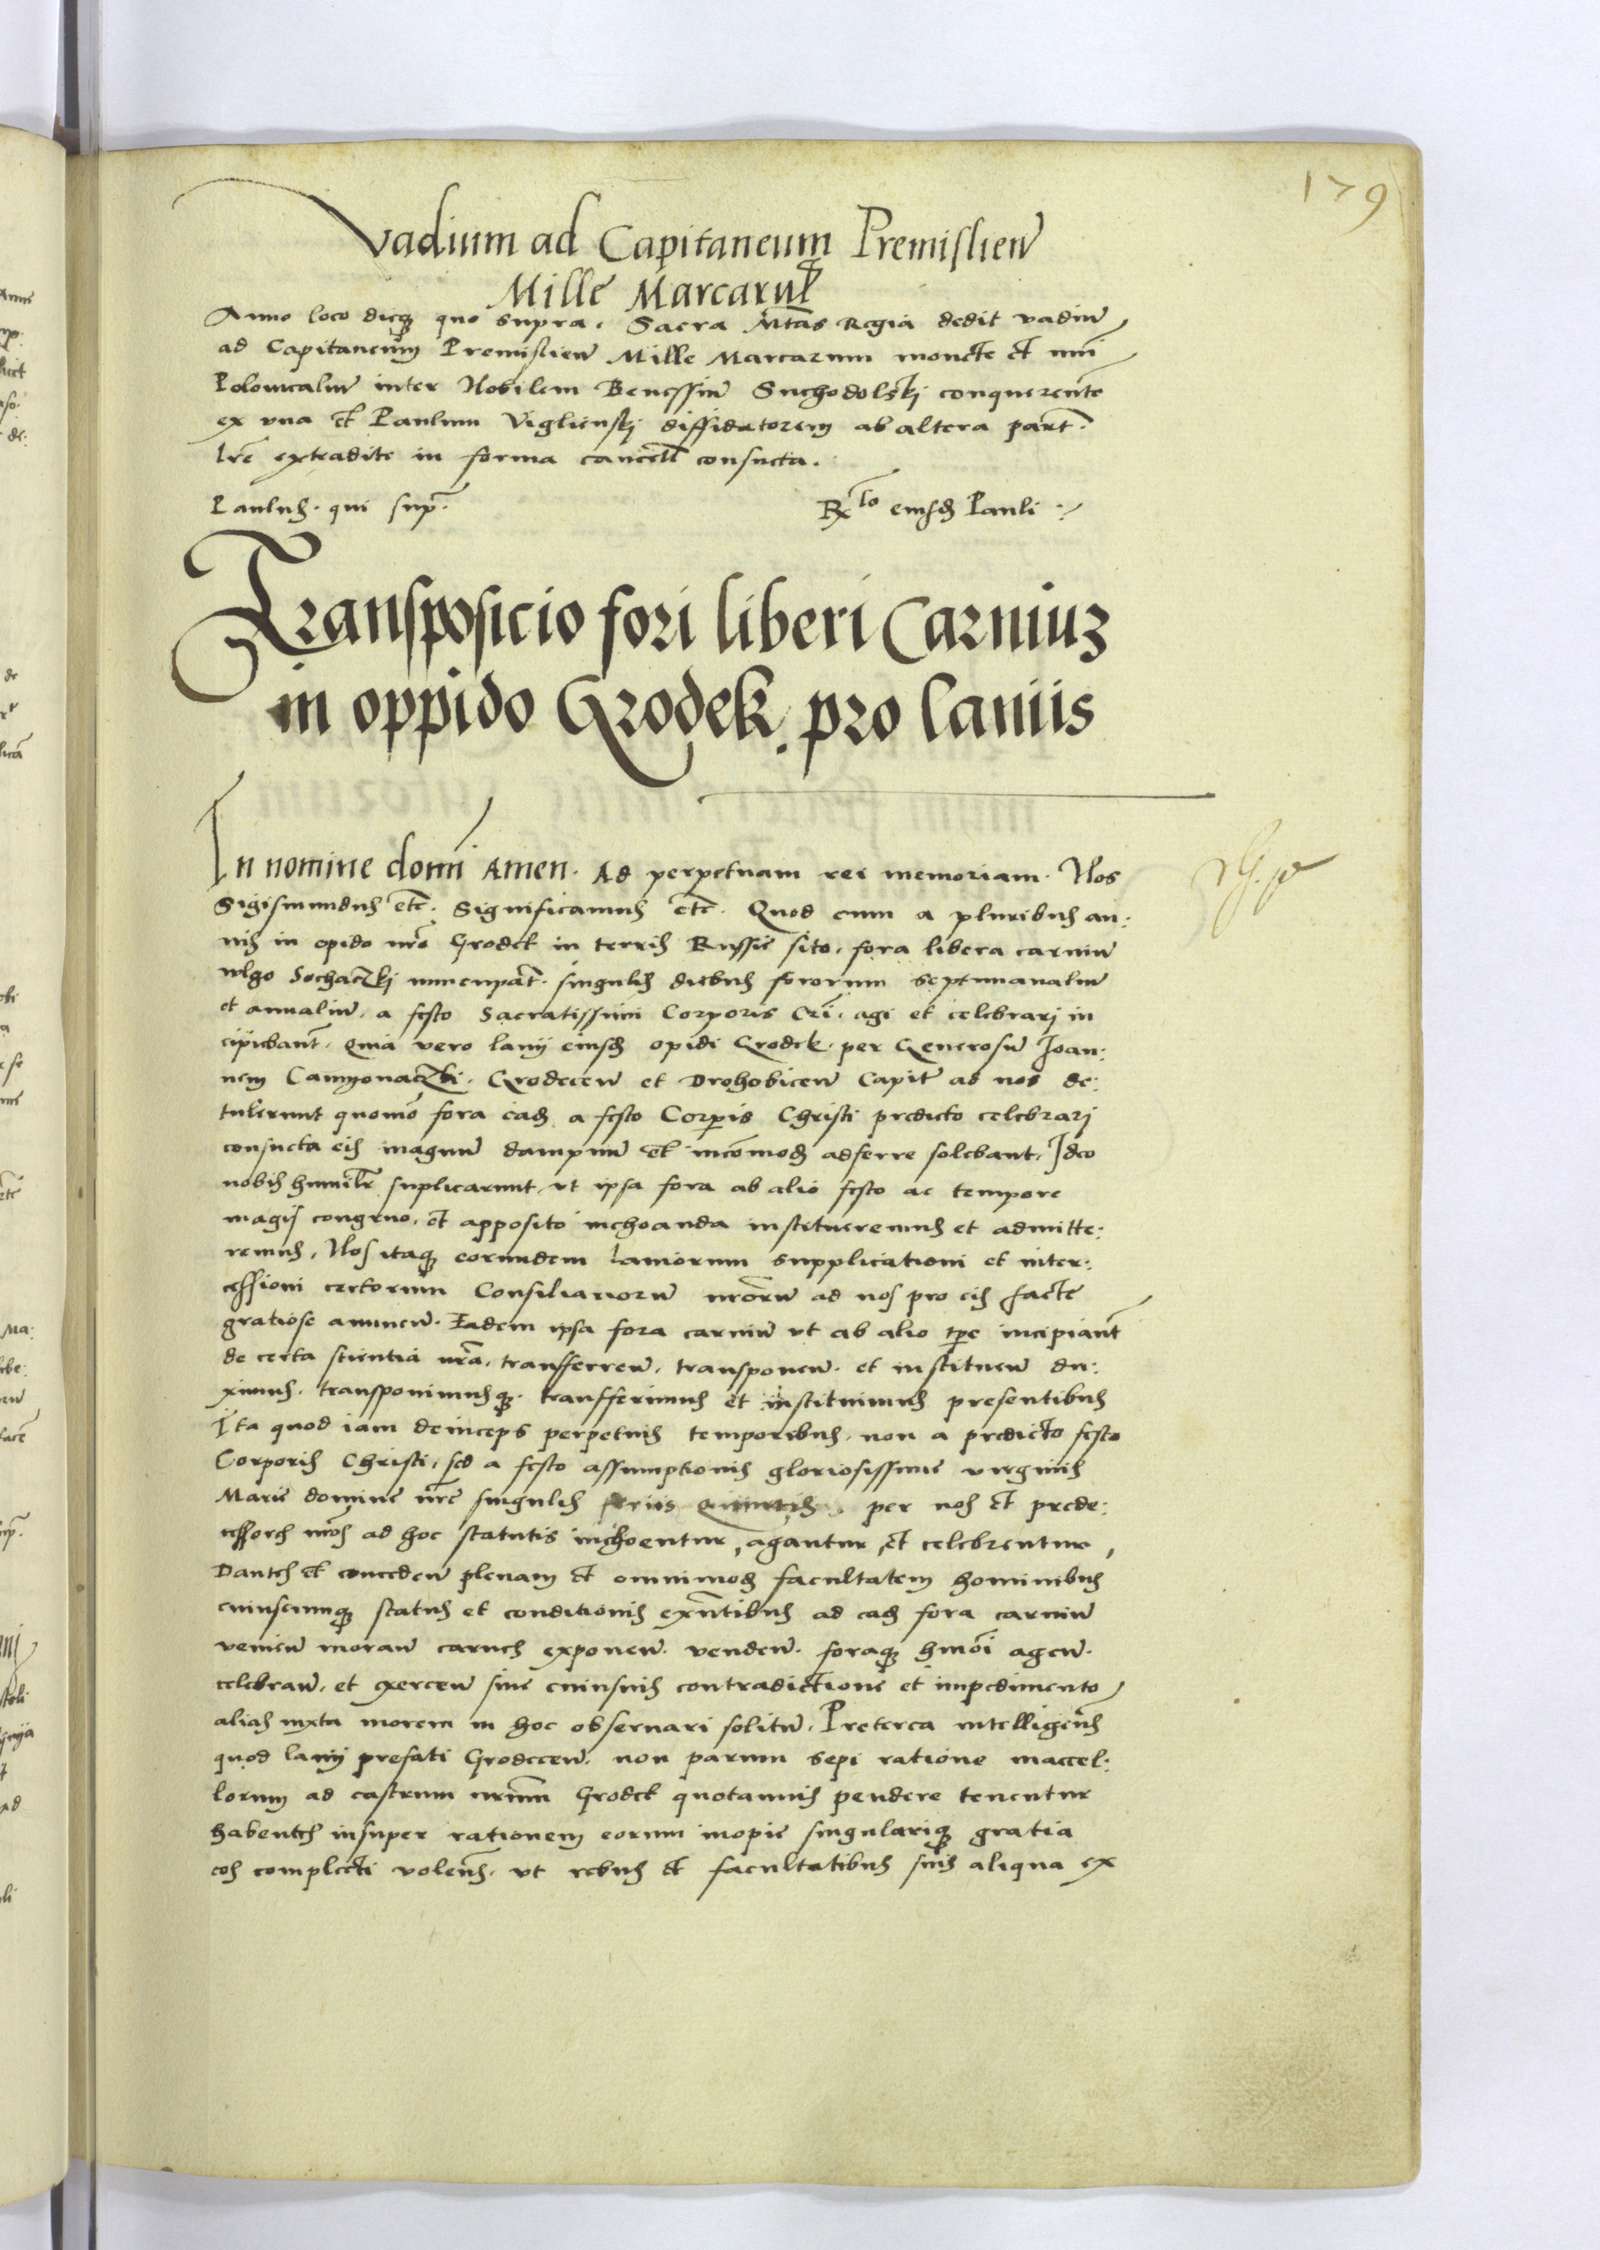 179
Vadium ad Capitaneum Premislien
Mille Marcarum
Anno loco dieq quo supra. Sacra Mtas Regia dedit vadiu
ad Capitaneum Premislien Mille Marcarum monete et nui
Polonicaliu inter Nobilem Benessiu Suchodolskj conquerente
ex una et Paulum Viglienskj diffidatorem ab altera part.
lre extradite in forma cancell consueta.
Paulus. qui sup. Rlo eiusd Pauli
Transposicio fori liberi Carniuz
in oppido Grodek pro laniis
In nomine domi Amen. Ad perpetuam rei memoriam. Nos
Sigismundus etc. Significamus etc. Quod cum a pluribus an:
nis in opido nro Grodek in terris Russie sito. fora libera carniu
vulgo Sochaczkj nuncupat. singulis diebus fororum septimanaliu
et annaliu. a festo Sacratissimi Corporis Cri. agi et celebrarj in
cipiebant. Quia vero lanij eiusd opidi Grodek. per Generosu Joan:
nem Camyonaczki. Grodecen et Drohobicen Capit ad nos de:
tulerunt quomo fora ead a festo Corpis Christi predicto celebrarj
consueta eis magnu dampnu et incomod adferre solebant. Ideo
nobis humilr suplicarunt. ut ipsa fora ab alio festo ac tempore
magis congruo. et apposito inchoanda institueremus et admitte:
remus. Nos itaq eorundem laniorum supplicationi et inter:
cessioni certorum Consiliarioru nroru ad nos pro eis facte
gratiose annuen. Eadem ipsa fora carniu ut ab alio tpe incipiant
de certa scientia nra. transferren. transponen. et instituen du:
ximus. transponimusq. transferimus et instituimus presentibus
Ita quod iam deinceps perpetuis temporibus. non a predicto festo
Corporis Christi. sed a festo assumptionis gloriosissime virginis
Marie domine nre singulis feriis Quintis. per nos et prede:
cessores nros ad hoc statutis inchoentur, agantur et celebrentur,
Dantes et conceden plenam et omnimod facultatem hominibus
cuiuscumq status et conditionis exntibus ad ead fora carniu
venien moran carnes exponen. venden. foraq hmoi agen.
celebran. et exercen sine cuiusuis contradictione et impedimento
alias iuxta morem in hoc obseruari solitu. Preterea intelligens
quod lanij prefati Grodecen. non parum sepi ratione maccel:
lorum ad castrum nrum Grodek quotannis pendere tenentur
habentes insuper rationem eorum inopie singulariq gratia
eos complecti volens. ut rebus et facultatibus suis aliqua ex